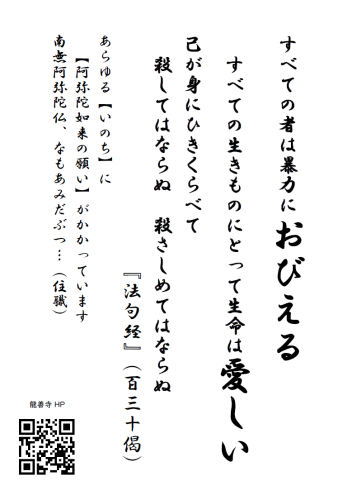 すべての者は暴力におびえる
すべての生きものにとって生命は愛しい
己が身にひきくらべて
殺してはならぬ　殺さしめてはならぬ
『法句経』（百三十偈）
あらゆる【いのち】に
【阿弥陀如来の願い】がかかっています
南無阿弥陀仏、なもあみだぶつ…（住職）
龍善寺 HP